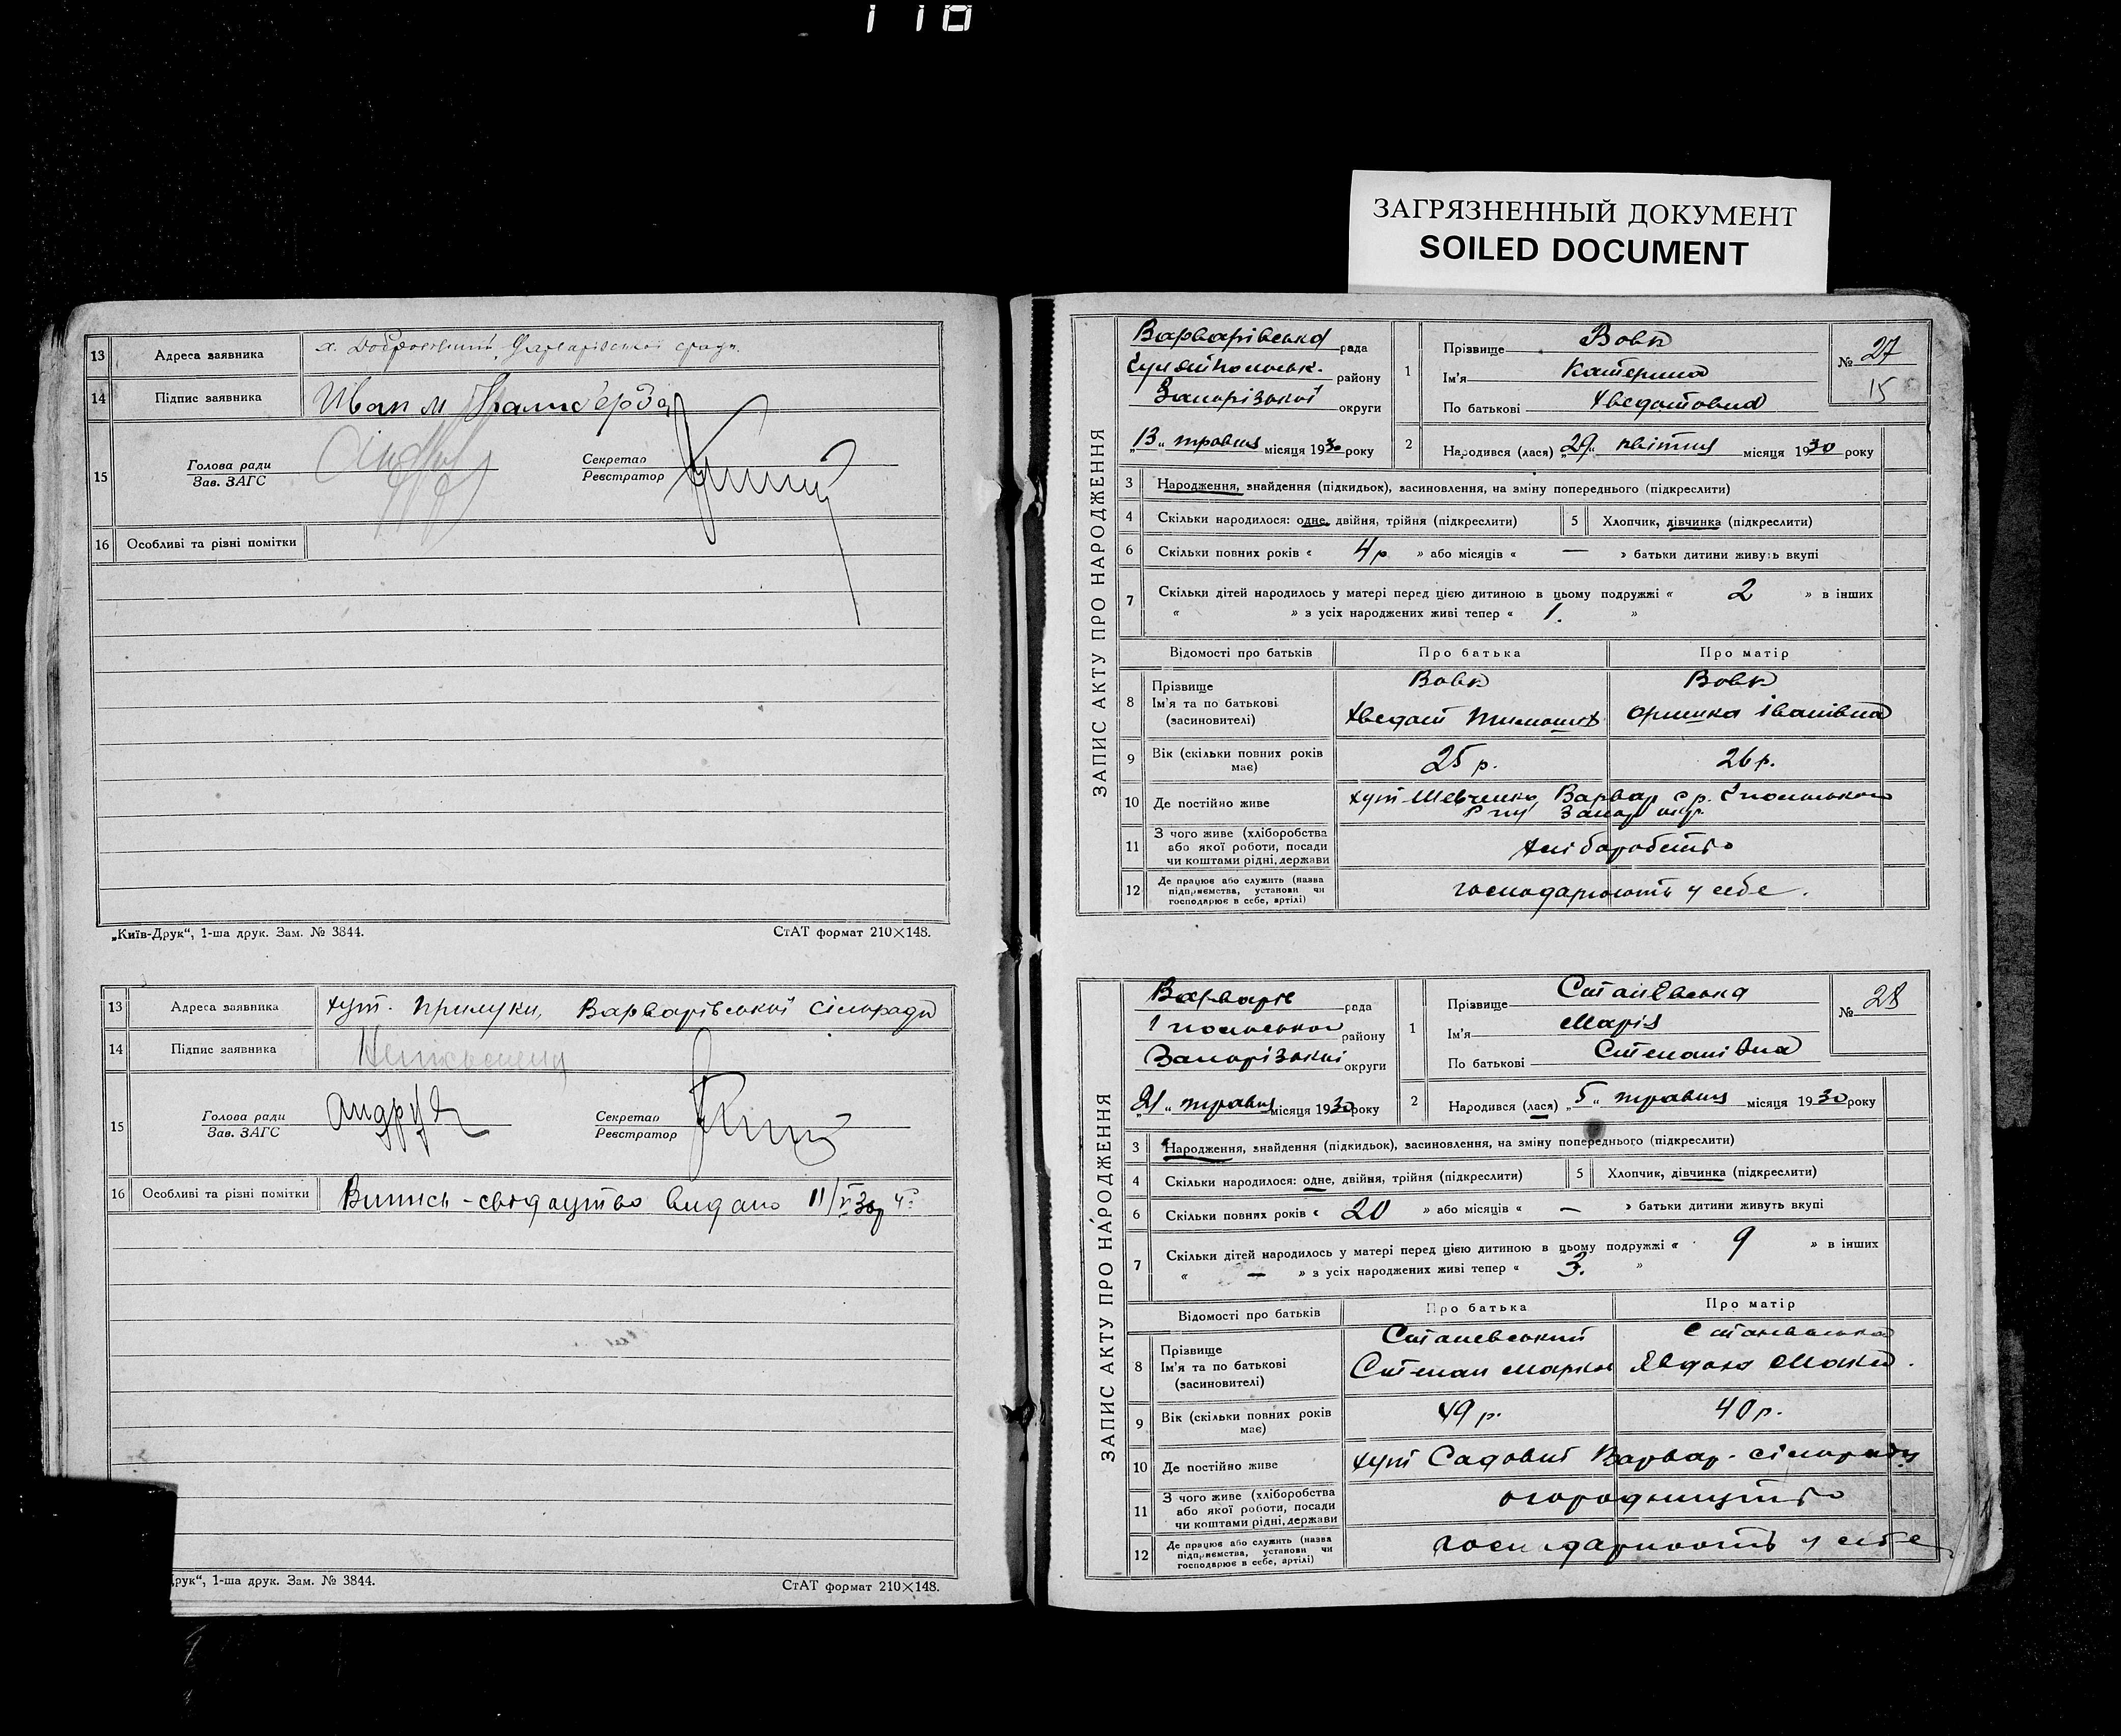 110
ЗАГРЯЗНЕННЫЙ ДОКУМЕНТ
SOILED DOCUMENT
13 Адреса заявника х.
14 Підпис заявника Иван М
15 Голова ради Секретар
Зав. ЗАГС Реєстратор
16 Особливі та різні помітки
„Київ-Друк“, 1-ша друк. Зам. № 3844. СтАТ формат 210×148.
13 Адреса заявника хут. Прилуки, Варварівської сільради
14 Підпис заявника
15 Голова ради Андрух Секретар
Зав. ЗАГС Реєстратор
16 Особливі та різні помітки Випись-свідоцтво видано 11/V 30р
друк“, 1-ша друк. Зам. № 3844. СтАТ формат 210×148.
ЗАПИС АКТУ ПРО НАРОДЖЕННЯ
Варварівська рада
району
Запорізької округи
„13“ травня місяця 1930 року
1 Прізвище Вовк
Ім'я Катерина
По батькові Хведотовна
№ 27
15
2 Народився (лася) „29“ квітня місяця 1930 року
3 Народження, знайдення (підкидьок), засиновлення, на зміну попереднього (підкреслити)
4 Скільки народилося: одне, двійня, трійня (підкреслити) 5 Хлопчик, дівчинка (підкреслити)
6 Скільки повних років « 4р » або місяців « — » батьки дитини живуть вкупі
7 Скільки дітей народилось у матері перед цією дитиною в цьому подружжі « 2 » в інших
« » з усіх народжених живі тепер « 1. »
Відомості про батьків Про батька Про матір
8 Прізвище Вовк Вовк
Ім'я та по батькові Хведот Тимошів Оришка Іванівна
(засиновителі)
9 Вік (скільки повних років має) 25 р. 26 р.
10 Де постійно живе хут Шевченко Варвар с р.
Запор окр.
11 З чого живе (хліборобства або якої роботи, посади чи коштами рідні, держави хліборобство
12 Де працює або служить (назва підприємства, установи чи господарює в себе, артілі) господарюють у себе.
ЗАПИС АКТУ ПРО НАРОДЖЕННЯ
Варварів рада
району
Запорізької округи
„21“ травня місяця 1930 року
1 Прізвище Станєвська
Ім'я Марія
По батькові Степанівна
№ 28
2 Народився (лася) „5“ травня місяця 1930 року
3 Народження, знайдення (підкидьок), засиновлення, на зміну попереднього (підкреслити)
4 Скільки народилося: одне, двійня, трійня (підкреслити) 5 Хлопчик, дівчинка (підкреслити)
6 Скільки повних років « 20 » або місяців « — » батьки дитини живуть вкупі
7 Скільки дітей народилось у матері перед цією дитиною в цьому подружжі « 9 » в інших
« — » з усіх народжених живі тепер « 3. »
Відомості про батьків Про батька Про матір
8 Прізвище Станєвський Станєвська
Ім'я та по батькові Степан Марків Явдоха
(засиновителі)
9 Вік (скільки повних років має) 49 р. 40 р.
10 Де постійно живе хут Садовий Варвар. сільради
11 З чого живе (хліборобства або якої роботи, посади чи коштами рідні, держави огородництво
12 Де працює або служить (назва підприємства, установи чи господарює в себе, артілі) господарюють у себе